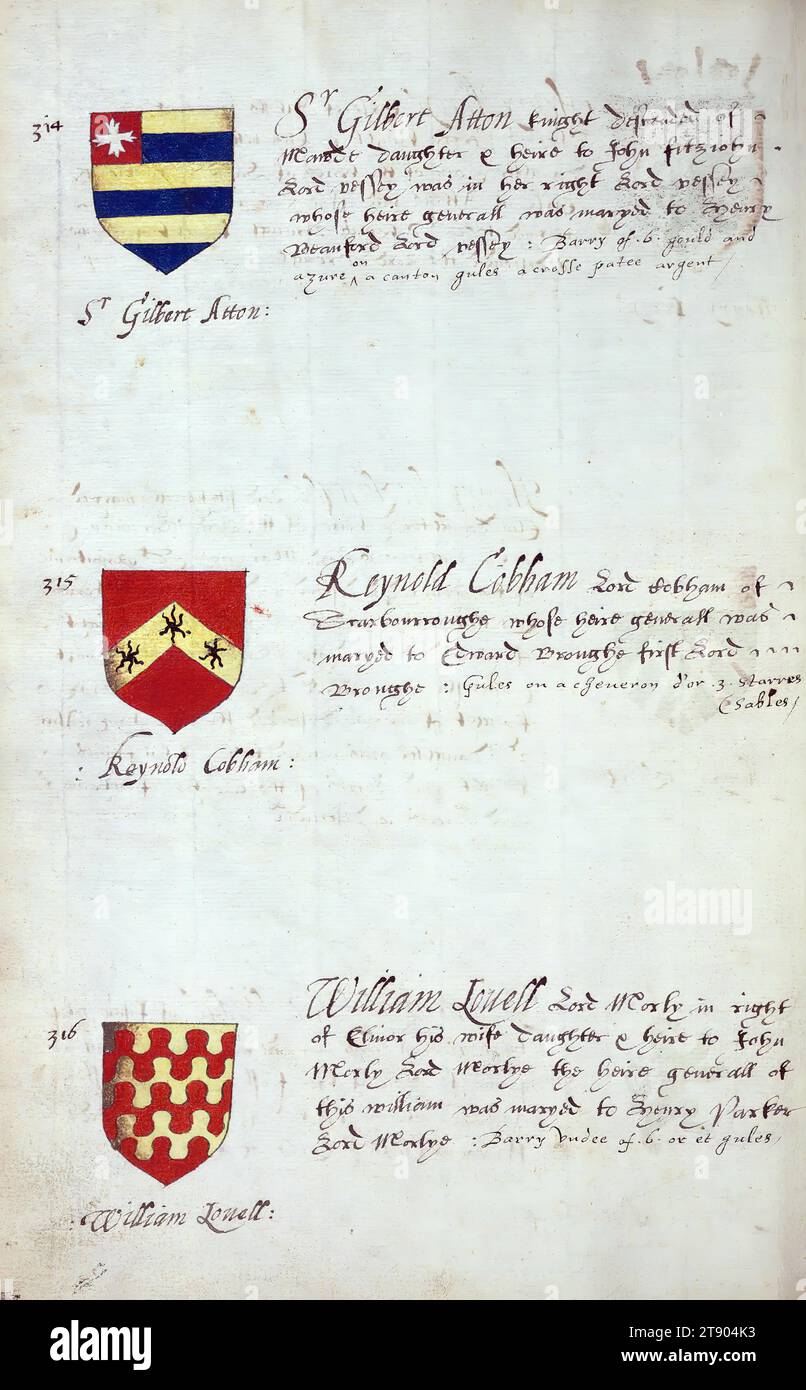 314
Sr Gilbert Atton knight descended of
Mawde daughter & heire to John fitziohn
Lord vessey was in her right Lord vessey
whose heire generall was maryed to Henry
Beauford Lord vessey : Barry of .6. gould and
azure on a canton gules a crosse patee argent
Sr Gilbert Atton :
315
Reynold Cobham Lord Cobham of
Starbourroughe whose heire generall was
maryed to Edward Broughe first Lord
Broughe : Gules on a cheueron d'or .3. starres
Sables /
: Reynold Cobham :
316
William Louell Lord Morly in right
of Elinor his wife daughter & heire to John
Morly Lord Morlye the heire generall of
this william was maryed to Henry Parker
Lord Morlye : Barry vndee of .6. or et gules /
: William Louell :
alamy
alamy
alamy
Image ID: 2T904K3
www.alamy.com